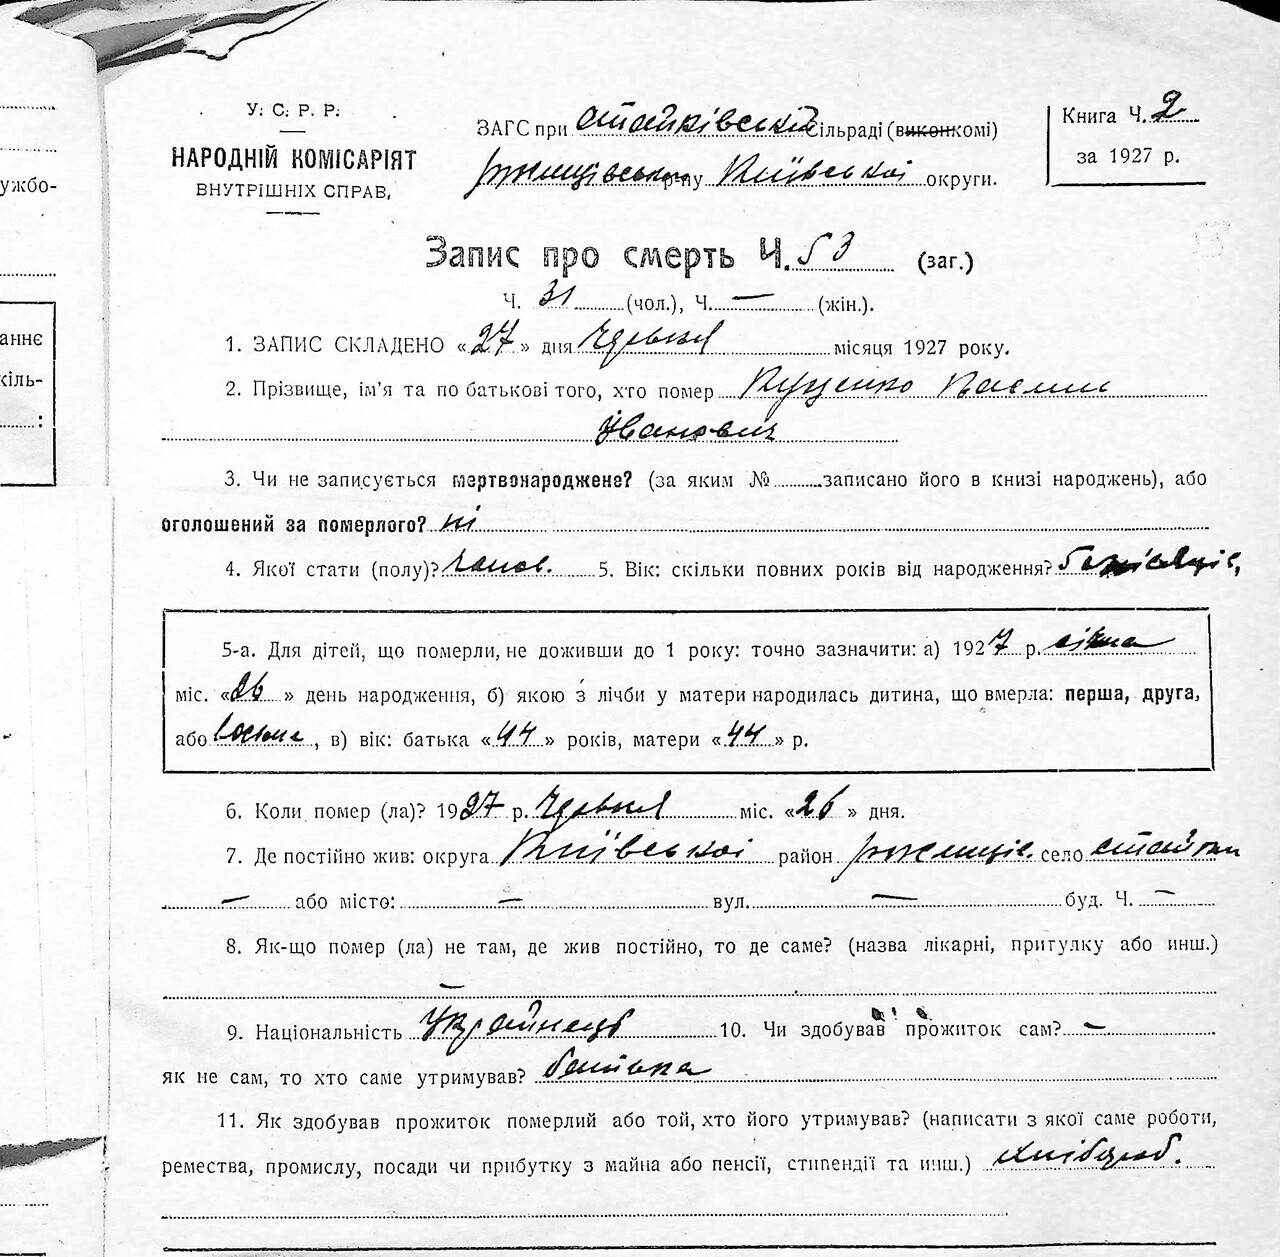 У. С. Р. Р.
НАРОДНІЙ КОМІСАРІЯТ
ВНУТРІШНІХ СПРАВ,
ЗАГС при Стайківській сільраді (виконкомі)
р-ну Київської округи.
Книга Ч. 2
за 1927 р.
Запис про смерть Ч. 53 (заг.)
Ч. 31 (чол.), Ч. — (жін.).
1. ЗАПИС СКЛАДЕНО «27» дня Червня місяця 1927 року.
2. Прізвище, ім'я та по батькові того, хто помер Куценко
Іванович
3. Чи не записується мертвонароджене? (за яким № записано його в книзі народжень), або
оголошений за померлого? ні
4. Якої стати (полу)? чолов. 5. Вік: скільки повних років від народження?
5-а. Для дітей, що померли, не доживши до 1 року: точно зазначити: а) 1927 р. січня
міс. «26» день народження, б) якою з лічби у матери народилась дитина, що вмерла: перша, друга,
або восьма, в) вік: батька «44» років, матери «44» р.
6. Коли помер (ла)? 1927 р. Червня міс. «26» дня.
7. Де постійно жив: округа Київської район ржищів. село Стайки
— або місто: — вул. — буд. Ч. —
8. Як-що помер (ла) не там, де жив постійно, то де саме? (назва лікарні, притулку або инш.)
—
9. Національність Українець 10. Чи здобував прожиток сам? —
як не сам, то хто саме утримував? батько
11. Як здобував прожиток померлий або той, хто його утримував? (написати з якої саме роботи,
ремества, промислу, посади чи прибутку з майна або пенсії, стипендії та инш.) хлібороб.
ужбо-
анне
кіль-
: